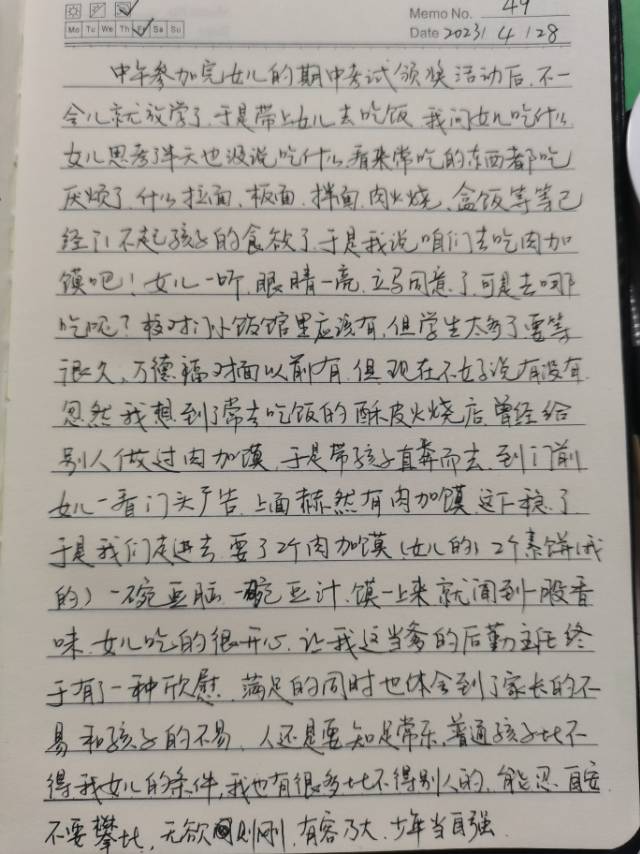 Memo No. 49
Mo Tu We Th Fr Sa Su
Date 2023/ 4 / 28
中午参加完女儿的期中考试颁奖活动后,不一
会儿就放学了,于是带上女儿去吃饭,我问女儿吃什么,
女儿思考了半天也没说吃什么,看来常吃的东西都吃
厌烦了,什么拉面、板面、拌面、肉火烧、盒饭等等已
经引不起孩子的食欲了,于是我说咱们去吃肉加
馍吧!女儿一听,眼睛一亮,立马同意了,可是去哪
吃呢?校对门小饭馆里应该有,但学生太多了要等
很久,万德福对面以前有,但现在不好说有没有,
忽然我想到了常去吃饭的酥皮火烧店,曾经给
别人做过肉加馍,于是带孩子直奔而去,到门前
女儿一看门头广告,上面赫然有肉加馍,这下稳了,
于是我们走进去,要了2个肉加馍(女儿的)2个素饼(我
的)一碗豆脑,一碗豆汁,馍一上来就闻到一股香
味,女儿吃的很开心,让我这当爹的后勤主任终
于有了一种欣慰,满足的同时也体会到了家长的不
易和孩子的不易,人还是要知足常乐,普通孩子比不
得我女儿的条件,我也有很多比不得别人的,能忍自安,
不要攀比,无欲则刚,有容乃大,少年当自强.